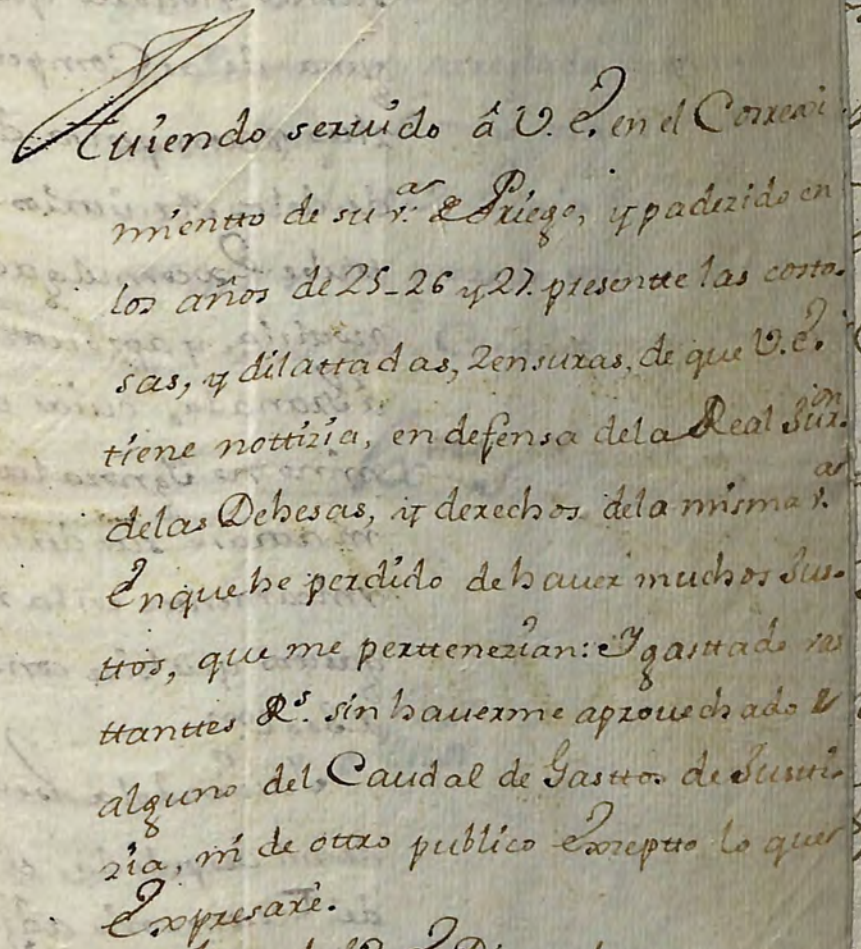 Auiendo seruido â V. E. en el Correxi
mientto de su v.ª de Priego, y padezido en
los años de 25-26 y 27. presentte las costo-
sas, y dilattadas, zensuras, de que V. E.
tiene nottizia, en defensa dela Real Jur.ion
delas Dehesas, y derechos dela misma v.ª
En que he perdido de hauer muchos Jus-
ttos, que me perttenezian: Y gasttado vas
ttanttes R.s sin hauerme aprouechado de
alguno del Caudal de Gasttos de Justti-
zia, ni de ottro publico Exzeptto lo que
Expresarè.